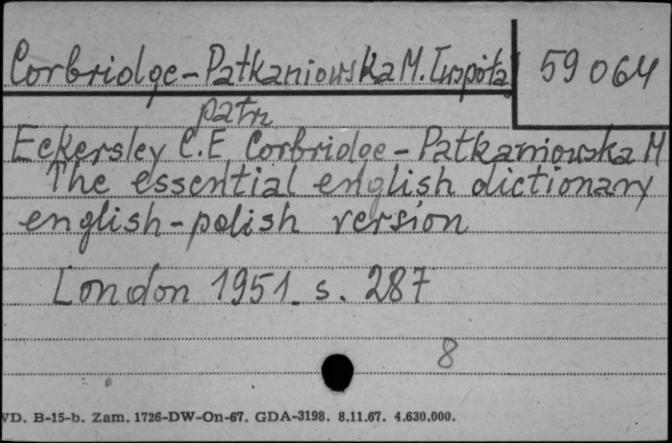 Corbridge-Patkaniowska M. [współa]
59064
patrz
Eckersley C.E Corbridge-Patkaniowska M
The essential english dictionary
english-polish version
London 1951. s. 287
8
VD. B-15-b. Zam. 1726-DW-On-67. GDA-3198. 8.11.67. 4.630.000.